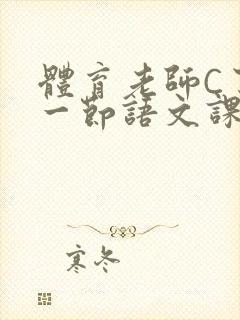 體育老師C
一節語文課
寒冬